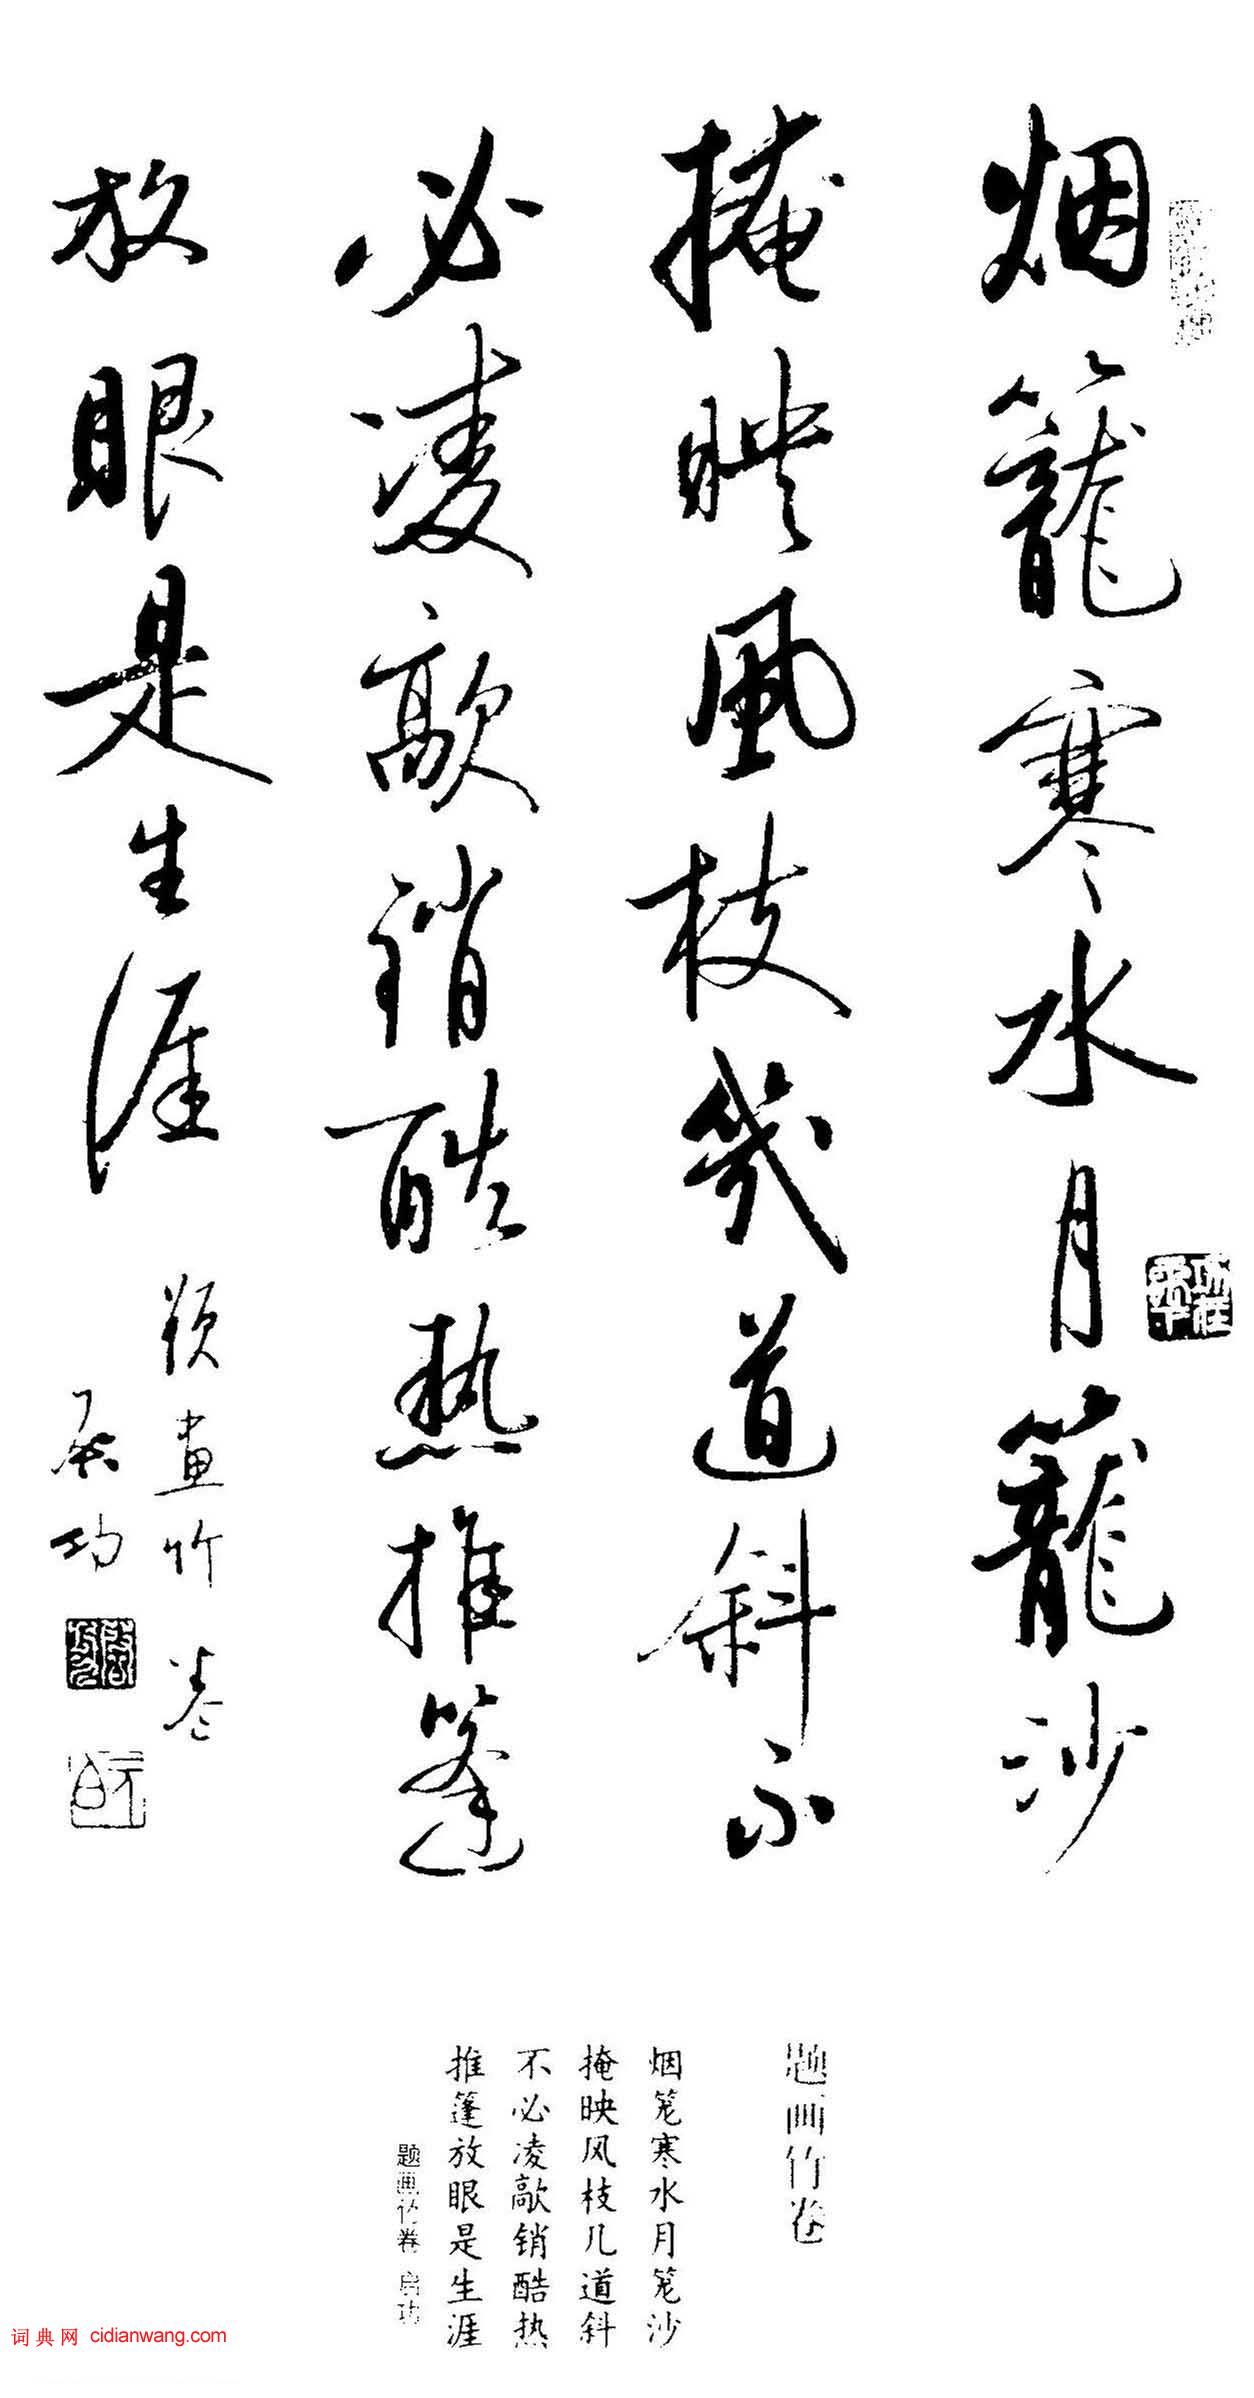 烟籠寒水月籠沙
掩映風枝幾道斜不
必凌歊銷酷热推篷
放眼是生涯
題畫竹卷
启功
题画竹卷
烟笼寒水月笼沙
掩映风枝几道斜
不必凌歊销酷热
推篷放眼是生涯
题画竹卷 启功
词典网 cidianwang.com